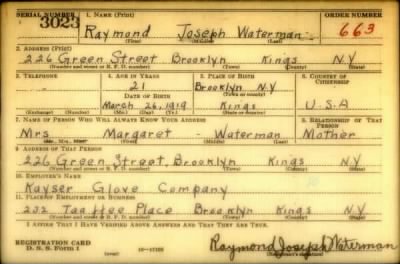 SERIAL NUMBER 1. NAME (Print) ORDER NUMBER
3023 Raymond Joseph Waterman 663
(First) (Middle) (Last)
2. ADDRESS (Print)
226 Green Street Brooklyn Kings N.Y
(Number and street or R. F. D. number) (Town) (County) (State)
3. TELEPHONE 4. AGE IN YEARS 5. PLACE OF BIRTH 6. COUNTRY OF CITIZENSHIP
21 Brooklyn N.Y
DATE OF BIRTH (Town or county)
March 26, 1919 Kings U.S.A
(Exchange) (Number) (Mo.) (Day) (Yr.) (State or country)
7. NAME OF PERSON WHO WILL ALWAYS KNOW YOUR ADDRESS 8. RELATIONSHIP OF THAT PERSON
Mrs Margaret - Waterman Mother
(Mr., Mrs., Miss) (First) (Middle) (Last)
9. ADDRESS OF THAT PERSON
226 Green Street, Brooklyn Kings N.Y
(Number and street or R. F. D. number) (Town) (County) (State)
10. EMPLOYER'S NAME
Kayser Glove Company
11. PLACE OF EMPLOYMENT OR BUSINESS
232 Taaffee Place Brooklyn Kings N.Y
(Number and street or R. F. D. number) (Town) (County) (State)
I AFFIRM THAT I HAVE VERIFIED ABOVE ANSWERS AND THAT THEY ARE TRUE.
REGISTRATION CARD
D. S. S. Form 1
Raymond Joseph Waterman
(Registrant's signature)